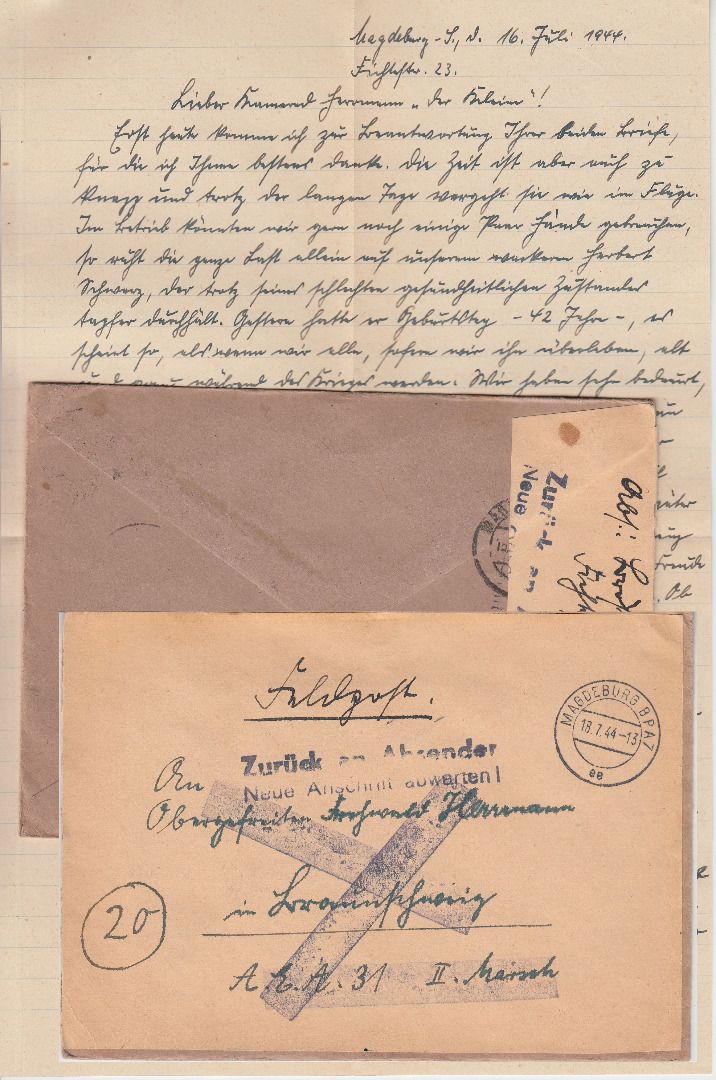 Magdeburg-S., d. 16. Juli 1944.
Fichtestr. 23.
Lieber Kamerad Herrmann „der Kleine"!
Erst heute komme ich zur Beantwortung Ihrer beiden Briefe,
für die ich Ihnen bestens danke. Die Zeit ist aber auch zu
knapp und trotz der langen Tage vergeht sie wie im Fluge.
Im Betrieb könnten wir gern noch einige Paar Hände gebrauchen,
so ruht die ganze Last allein auf unserem wackeren Herbert
Schwarz, der trotz seines schlechten gesundheitlichen Zustandes
tapfer durchhält. Gestern hatte er Geburtstag - 42 Jahre -, es
scheint so, als wenn wir alle, sofern wir ihn überleben, alt
und grau während des Krieges werden. Wir haben sehr bedauert,
Freude
Ob
Zurück an
Neue
Abs.:
Feldpost.
MAGDEBURG BPA 7
18.7.44-13
ee
Zurück an Absender
Neue Anschrift abwarten!
An
Obergefreiten Herrmann
20
in Braunschweig
A.E.A. 31 II. Marsch